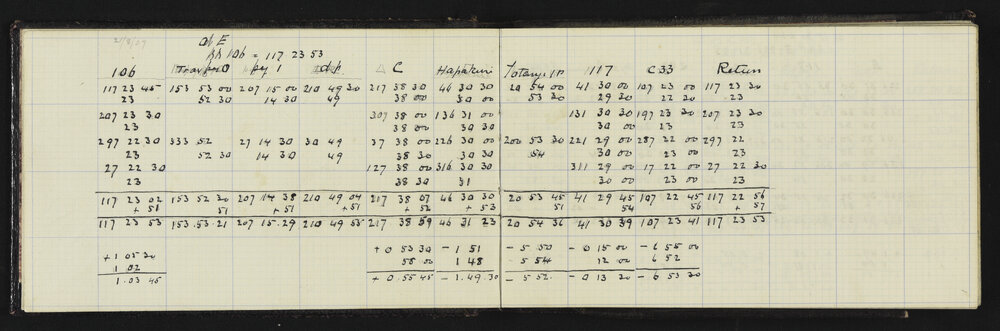 21/8/07
at E
106 = 117 23 53
106 Δ C Hapakuri 117 C33 Return
117 23 45 153 53 00 207 15 00 210 49 30 217 38 30 46 30 30 20 54 00 41 30 00 107 23 00 117 23 30
23 52 30 14 30 49 38 00 30 00 53 30 29 30 22 30 23
207 23 30 307 38 00 136 31 00 131 30 30 197 23 30 207 23 30
23 38 00 30 30 30 00 23 23
297 22 30 333 52 27 14 30 30 49 37 38 00 226 30 00 200 53 30 221 29 00 287 22 00 297 22
23 52 30 14 30 49 38 30 30 30 54 30 00 23 00 23
27 22 30 127 38 00 316 30 30 311 29 00 17 22 00 27 22 30
23 38 30 31 30 00 23 00 23
117 23 02 153 52 30 207 14 38 210 49 04 217 38 07 46 30 30 20 53 45 41 29 45 107 22 45 117 22 56
+ 51 51 + 51 + 51 + 52 + 53 51 54 56 + 57
117 23 53 153.53.21 207 15.29 210 49 55 217 38 59 46 31 23 20 54 36 41 30 39 107 23 41 117 23 53
+ 0 53 30 - 1 51 - 5 50 - 0 15 00 - 6 55 00
+ 1 05 30 58 00 1 48 5 54 12 00 6 52
1 02
1.03 45 + 0.55 45 - 1.49.30 - 5 52 - 0 13 30 - 6 53 30